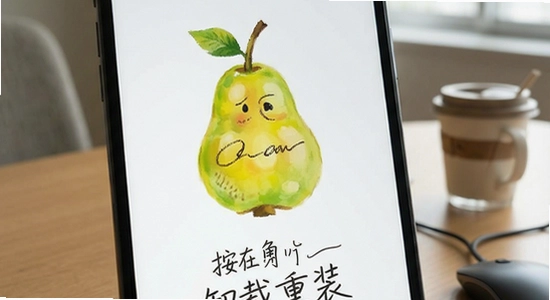 按在角
卸载重装